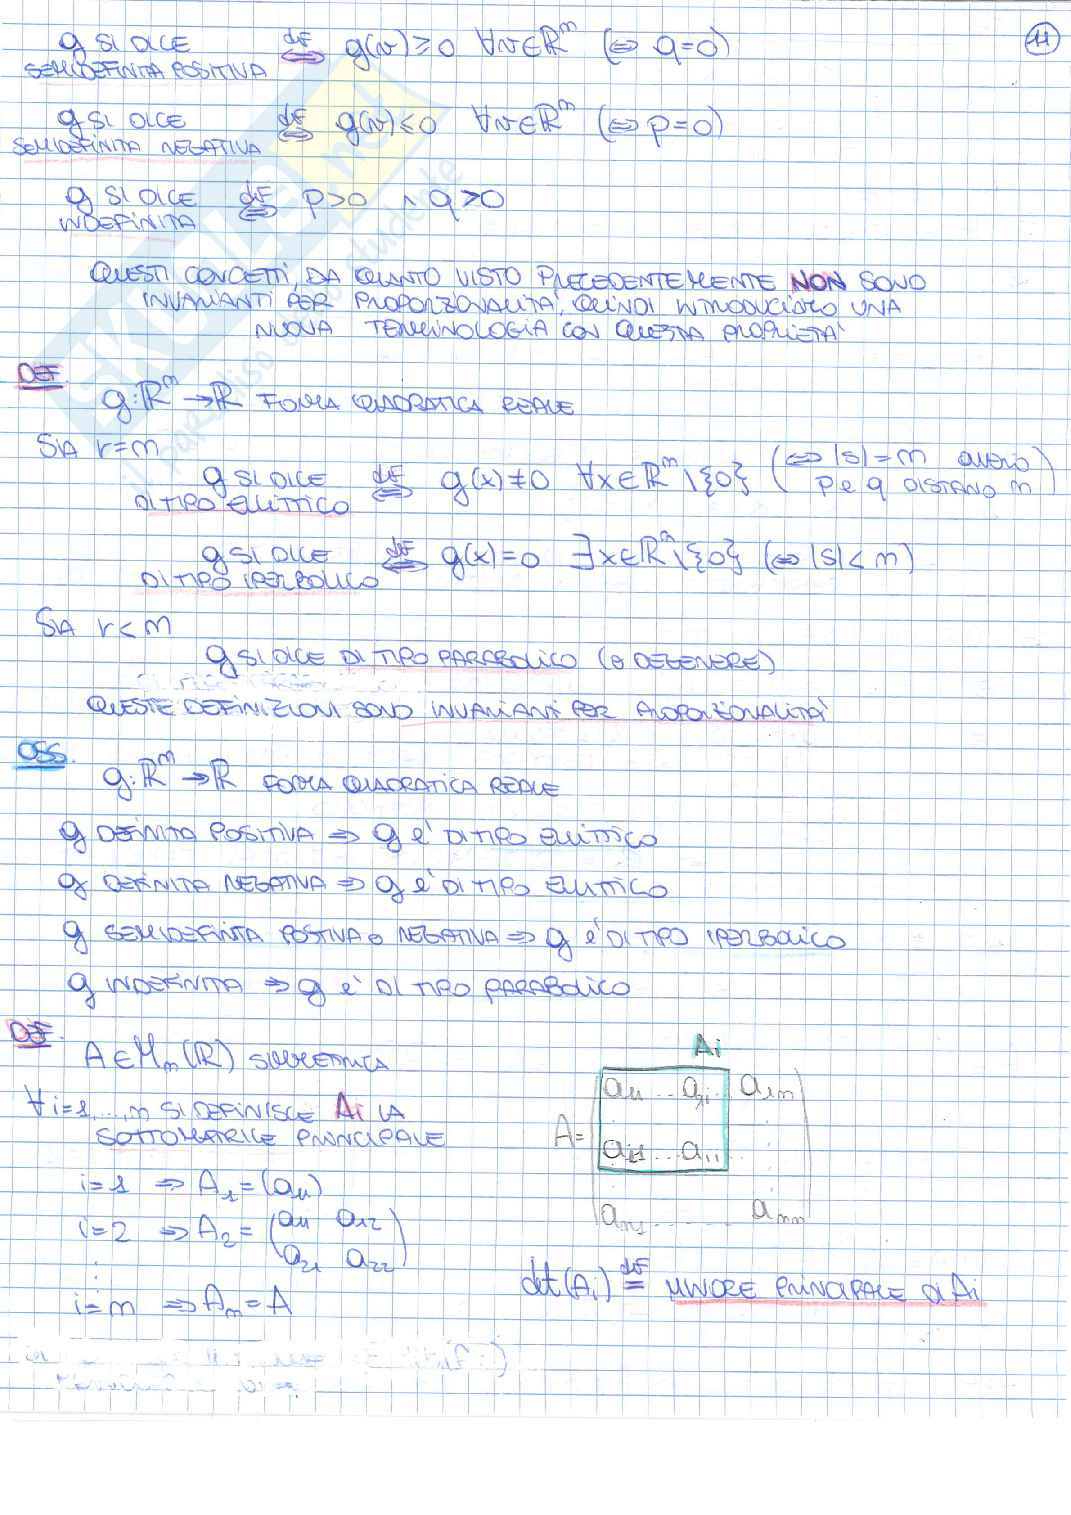 11
g SI DICE SEMIDEFINITA POSITIVA ⇔def g(v) ≥ 0 ∀v∈ℝⁿ (⇔ q=0)
g SI DICE SEMIDEFINITA NEGATIVA ⇔def g(v) ≤ 0 ∀v∈ℝⁿ (⇔ p=0)
g SI DICE INDEFINITA ⇔def p>0 ∧ q>0
QUESTI CONCETTI, DA QUANTO VISTO PRECEDENTEMENTE NON SONO
INVARIANTI PER PROPORZIONALITA', QUINDI INTRODUCIAMO UNA
NUOVA TERMINOLOGIA CON QUESTA PROPRIETA'
DEF.
g: ℝⁿ → ℝ FORMA QUADRATICA REALE
SIA r=n
g SI DICE DI TIPO ELLITTICO ⇔def g(x) ≠ 0 ∀x∈ℝⁿ\{0} (⇔ |s|=n OVVERO p e q DISTANO n)
g SI DICE DI TIPO IPERBOLICO ⇔def g(x)=0 ∃x∈ℝⁿ\{0} (⇔ |s|<n)
SIA r<n
g SI DICE DI TIPO PARABOLICO (O DEGENERE)
QUESTE DEFINIZIONI SONO INVARIANTI PER PROPORZIONALITA'
OSS.
g: ℝⁿ → ℝ FORMA QUADRATICA REALE
g DEFINITA POSITIVA ⇒ g E' DI TIPO ELLITTICO
g DEFINITA NEGATIVA ⇒ g E' DI TIPO ELLITTICO
g SEMIDEFINITA POSITIVA O NEGATIVA ⇒ g E' DI TIPO IPERBOLICO
g INDEFINITA ⇒ g E' DI TIPO PARABOLICO
DEF.
A∈Mₙ(ℝ) SIMMETRICA
∀i=1,...,n SI DEFINISCE Ai LA
SOTTOMATRICE PRINCIPALE
i=1 ⇒ A₁=(a₁₁)
i=2 ⇒ A₂=(a₁₁ a₁₂
a₂₁ a₂₂)
⋮
i=n ⇒ Aₙ=A
Ai
A= (a₁₁ ... a₁ᵢ ... a₁ₙ
aᵢ₁ ... aᵢᵢ
aₙ₁ ... aₙₙ)
det(Ai) =def MINORE PRINCIPALE di Ai